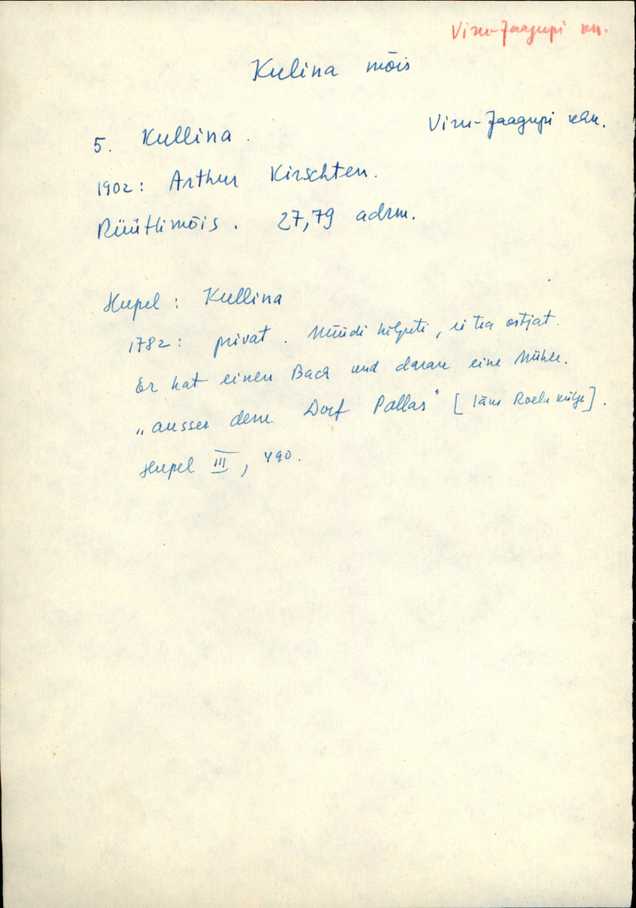 Viru-Jaagupi khk.
Kulina mõis
5. Kullina. Viru-Jaagupi khk.
1902: Arthur Kirschten.
Rüütlimõis. 27,79 adrm.
Hupel: Kullina
1782: privat. Müüdi hiljuti, ei tea ostjat.
Er hat einen Bach und daran eine Mühle.
„ausser dem Dorf Pallas" [täna Roela külje].
Hupel III, 490.